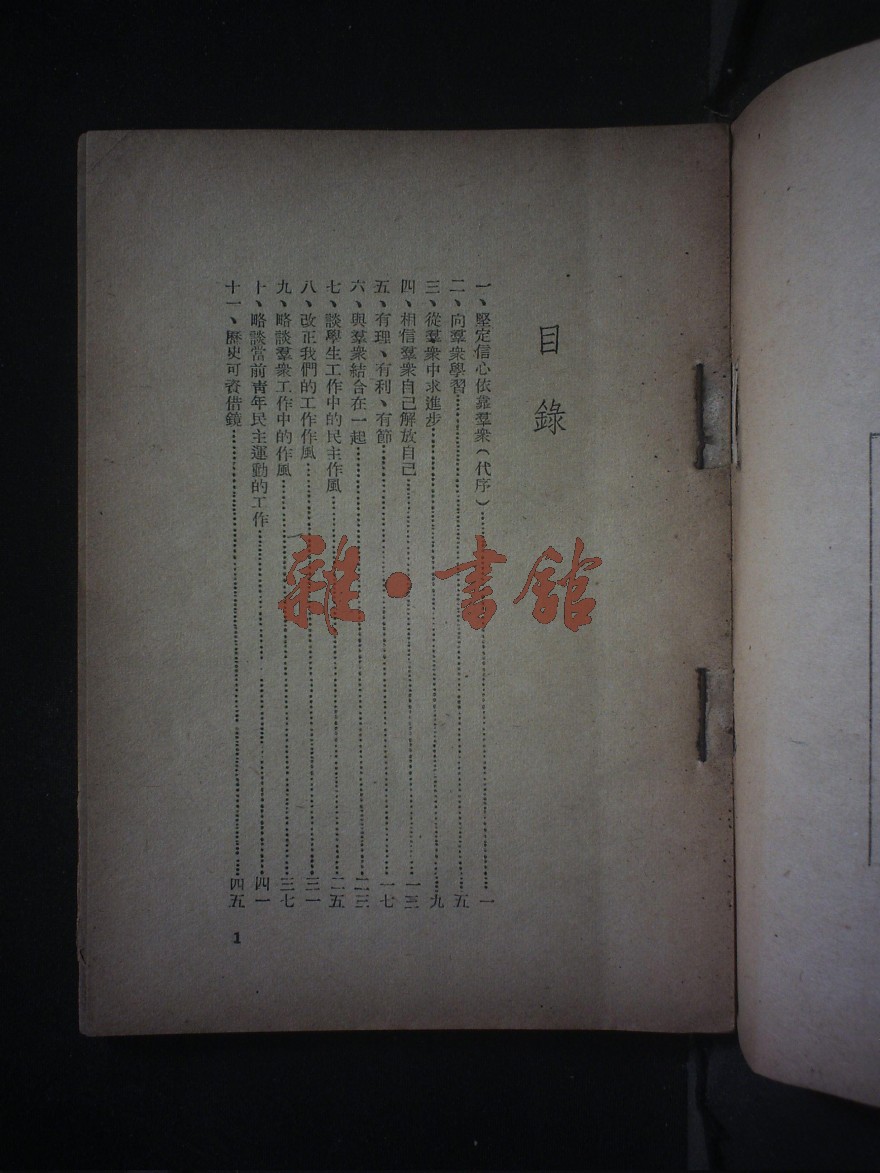 目錄
一、堅定信心依靠羣衆(代序)……一
二、向羣衆學習……五
三、從羣衆中求進步……九
四、相信羣衆自己解放自己……一三
五、有理、有利、有節……一七
六、與羣衆結合在一起……二三
七、談學生工作中的民主作風……二五
八、改正我們的工作作風……三一
九、略談羣衆工作中的作風……三七
十、略談當前靑年民主運動的工作……四一
十一、歷史可資借鏡……四五
1
雜·書館